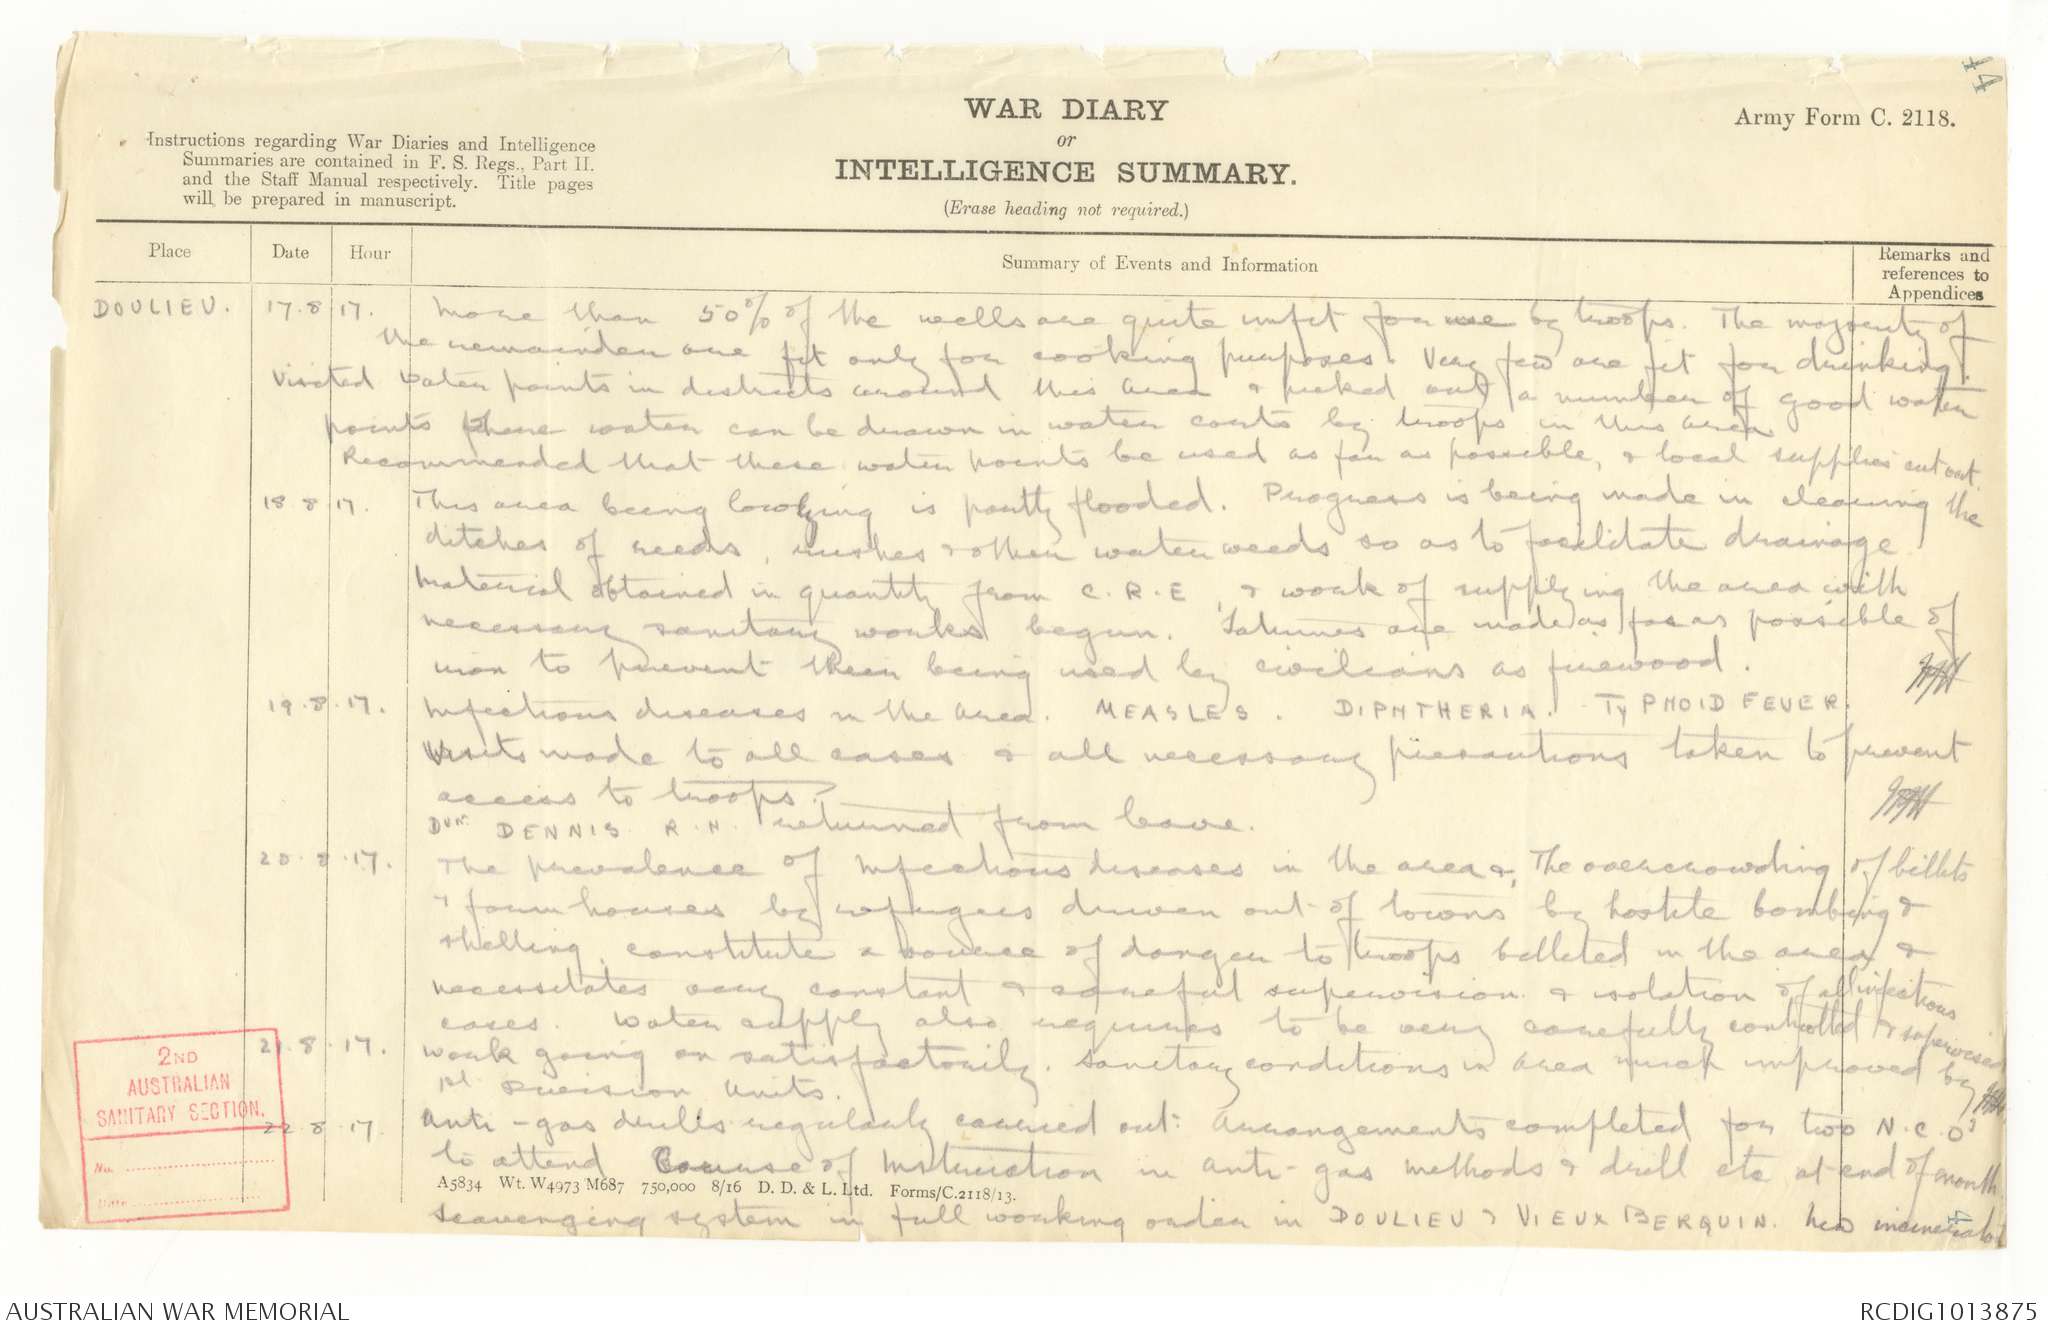 44
WAR DIARY
or
INTELLIGENCE SUMMARY.
(Erase heading not required.)
Army Form C. 2118.
Instructions regarding War Diaries and Intelligence
Summaries are contained in F. S. Regs., Part II.
and the Staff Manual respectively. Title pages
will be prepared in manuscript.
Place Date Hour Summary of Events and Information Remarks and references to Appendices
DOULIEU. 17.8.17. More than 50% of the wells are quite unfit for use by troops. The majority of
the remainder are fit only for cooking purposes. Very few are fit for drinking.
Visited water points in districts around this area & picked out a number of good water
points where water can be drawn in water carts by troops in this area
Recommended that these water points be used as far as possible, & local supplies cut out.
18.8.17. This area being low lying is partly flooded. Progress is being made in clearing the
ditches of reeds, rushes & other water weeds so as to facilitate drainage
Material obtained in quantity from C.R.E, & work of supplying the area with
necessary sanitary works begun. Latrines are made as far as possible of
iron to prevent their being used by civilians as firewood.
19.8.17. Infectious diseases in the area. MEASLES. DIPHTHERIA. TYPHOID FEVER.
Visits made to all cases & all necessary precautions taken to prevent
access to troops.
Dvr. DENNIS R.H. returned from leave.
20.8.17. The prevalence of infectious diseases in the area &, The overcrowding of billets
& farm houses by refugees driven out of towns by hostile bombing &
shelling, constitute a source of danger to troops billeted in the area &
necessitates very constant & careful supervision & isolation of all infectious
cases. Water supply also requires to be very carefully controlled & supervised
21.8.17. Work going on satisfactorily. Sanitary conditions in area much improved by
1st Division Units.
22.8.17. Anti-gas drills regularly carried out: Arrangements completed for two N.C.O's
to attend Course of Instruction in anti-gas methods & drill etc at end of month
A5834 Wt. W4973 M687 750,000 8/16 D. D. & L. Ltd. Forms/C.2118/13.
Scavenging system in full working order in DOULIEU & VIEUX BERQUIN. New incinerator
2ND
AUSTRALIAN
SANITARY SECTION.
No.
Date
AUSTRALIAN WAR MEMORIAL
RCDIG1013875